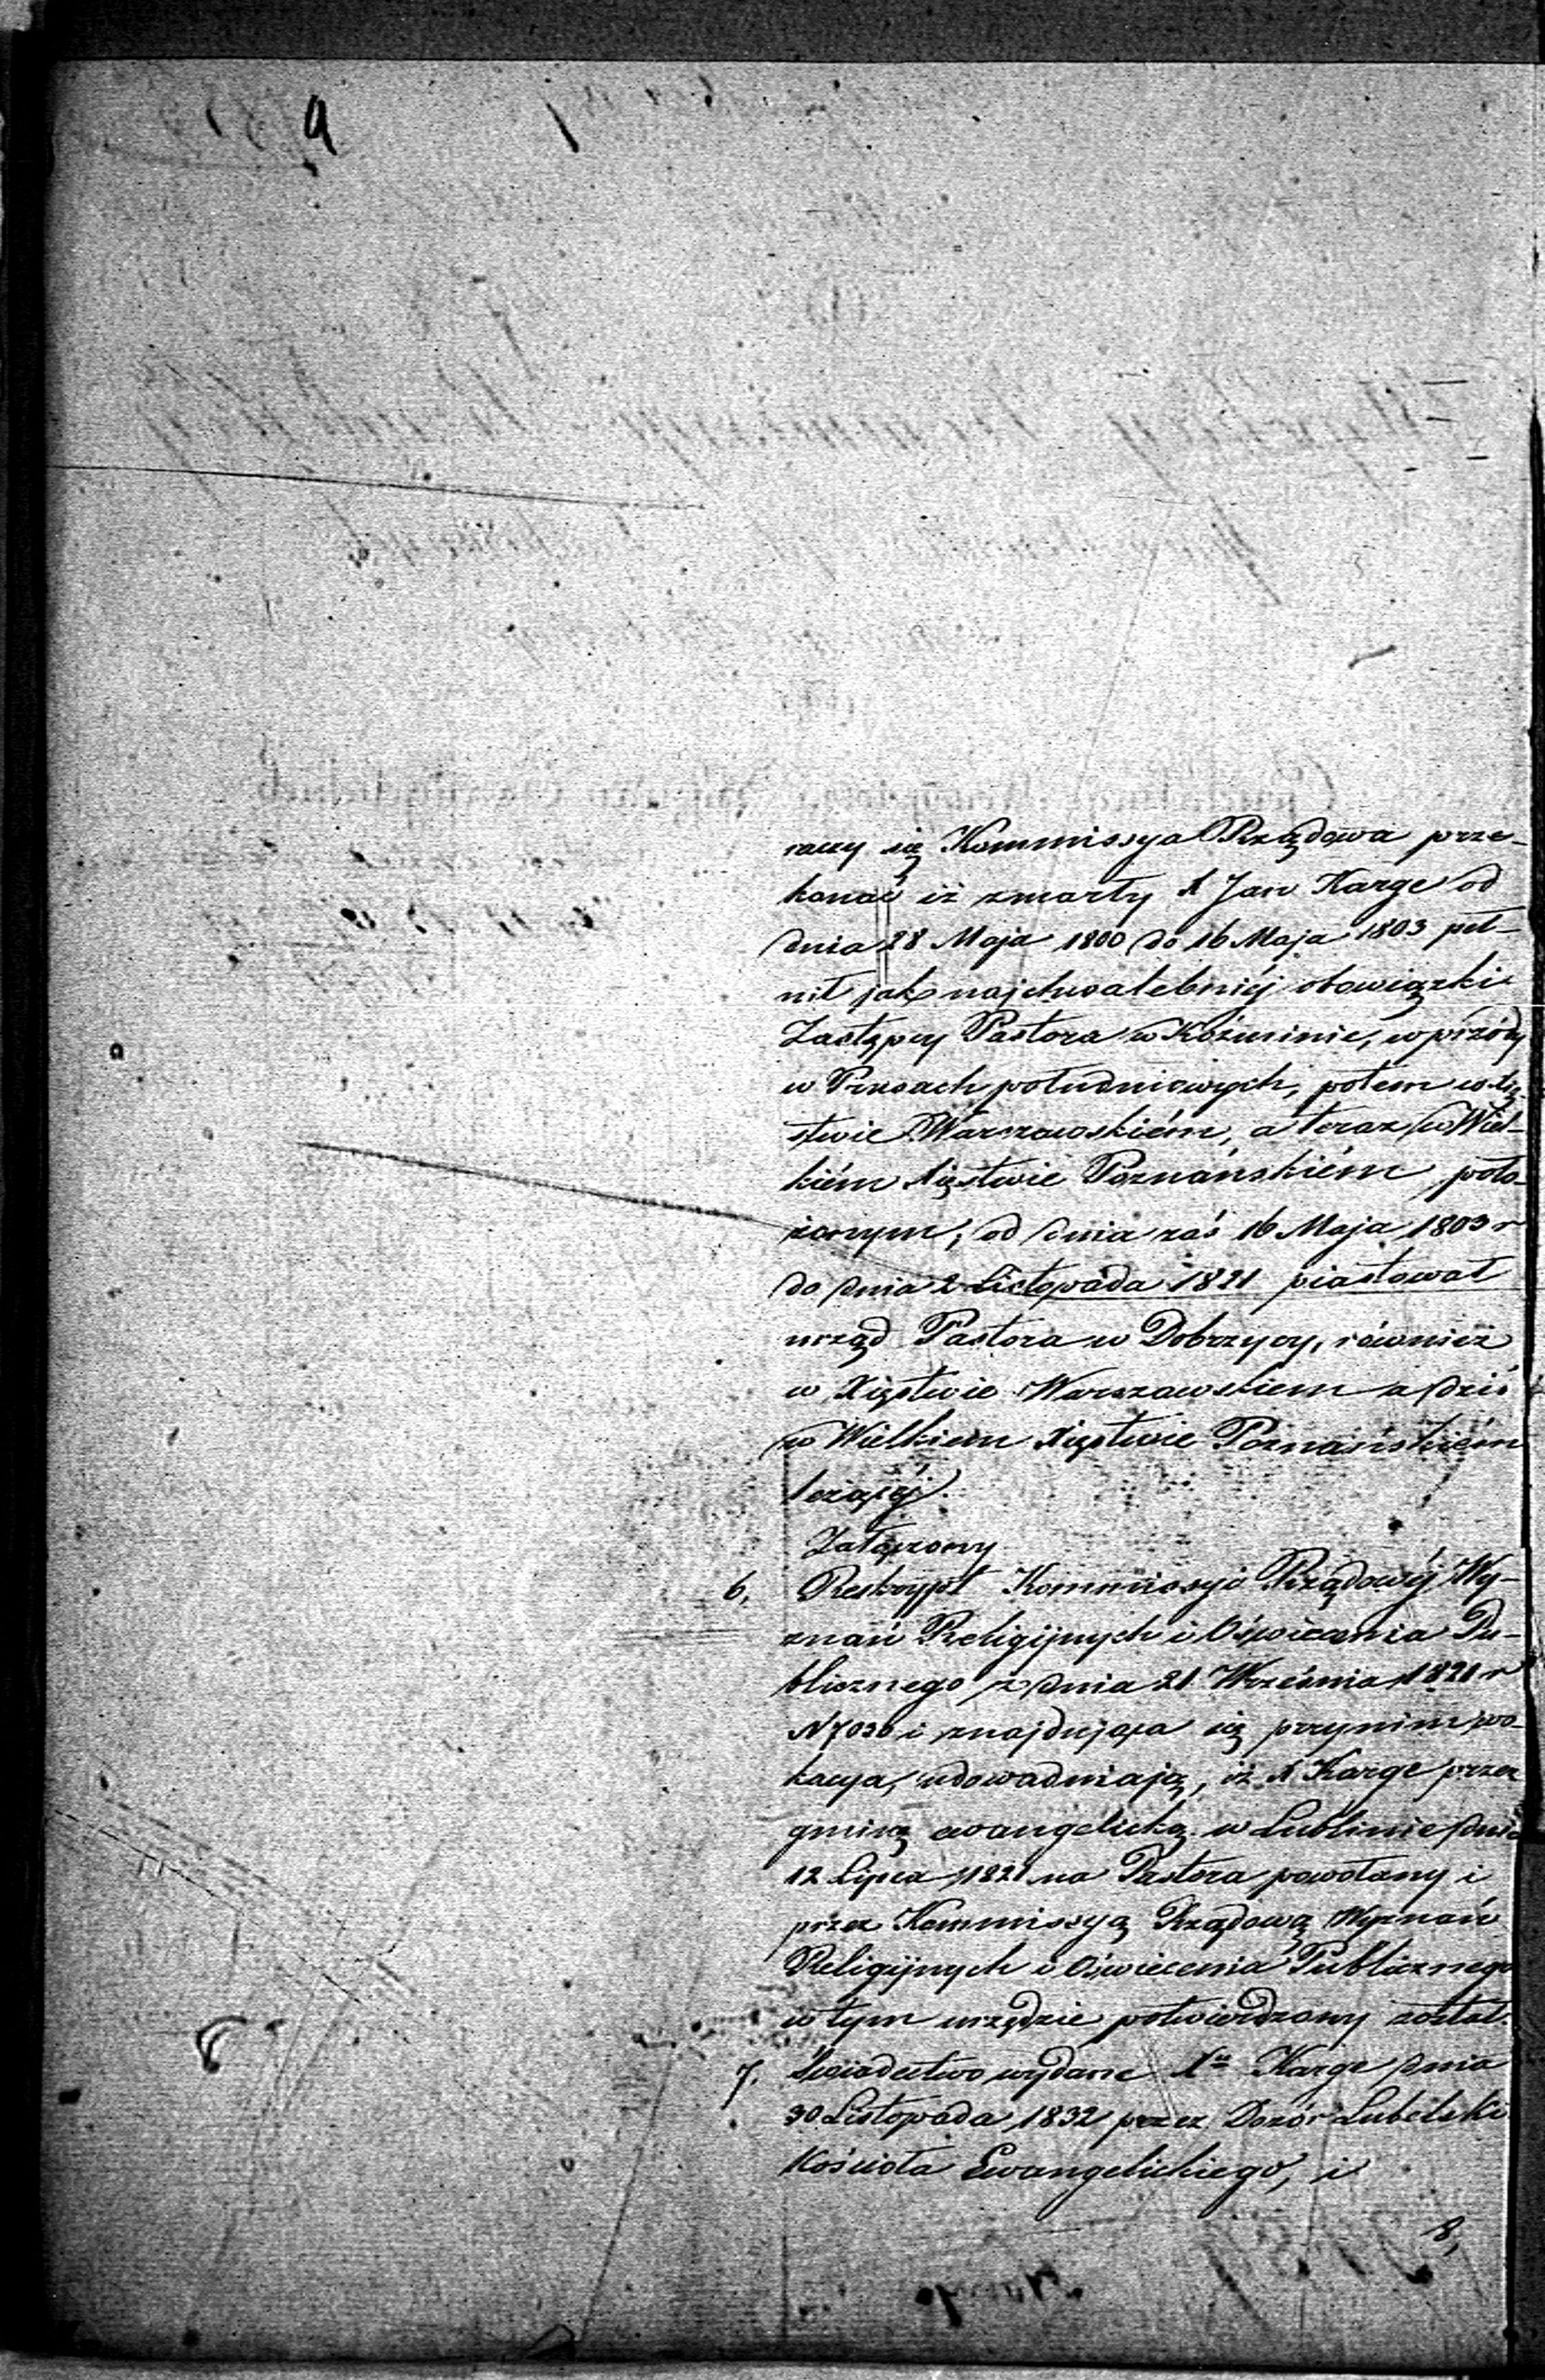 raczy się Kommissya Rządowa prze-
konać iż zmarły X Jan Karge od
dnia 28 Maja 1800 do 16 Maja 1803 peł-
nił jak najchwalebniéj obowiązki
Zastępcy Pastora w Koźminie, wprzódy
w Prusach południowych, potém w Xię-
stwie Warszawskiém, a teraz w Wiel-
kiém Xięstwie Poznańskiém poło-
żonym; od dnia zaś 16 Maja 1803 r
do dnia 2 Listopada 1821 piastował
urząd Pastora w Dobrzycy, również
w Xięstwie Warszawskiem a dziś
w Wielkiem Xięstwie Poznańskiém
leżącéj.
Załączony
6, Reskrypt Kommissyi Rządowéj Wy-
znań Religijnych i Oświecenia Pu-
blicznego z dnia 21 Września 1821 r
N 7030 i znajdująca się przy nim wo-
kacya, udowadniają, iż X Karge przez
gminę ewangelicką w Lublinie dnia
12 Lipca 1821 na Pastora powołany i
przez Kommissyą Rządową Wyznań
Religijnych i Oświecenia Publicznego
w tym urzędzie potwierdzony został.
7. Świadectwo wydane Xu Karge dnia
30 Listopada 1832 przez Dozór Lubelski
Kościoła Ewangelickiego, i
8,